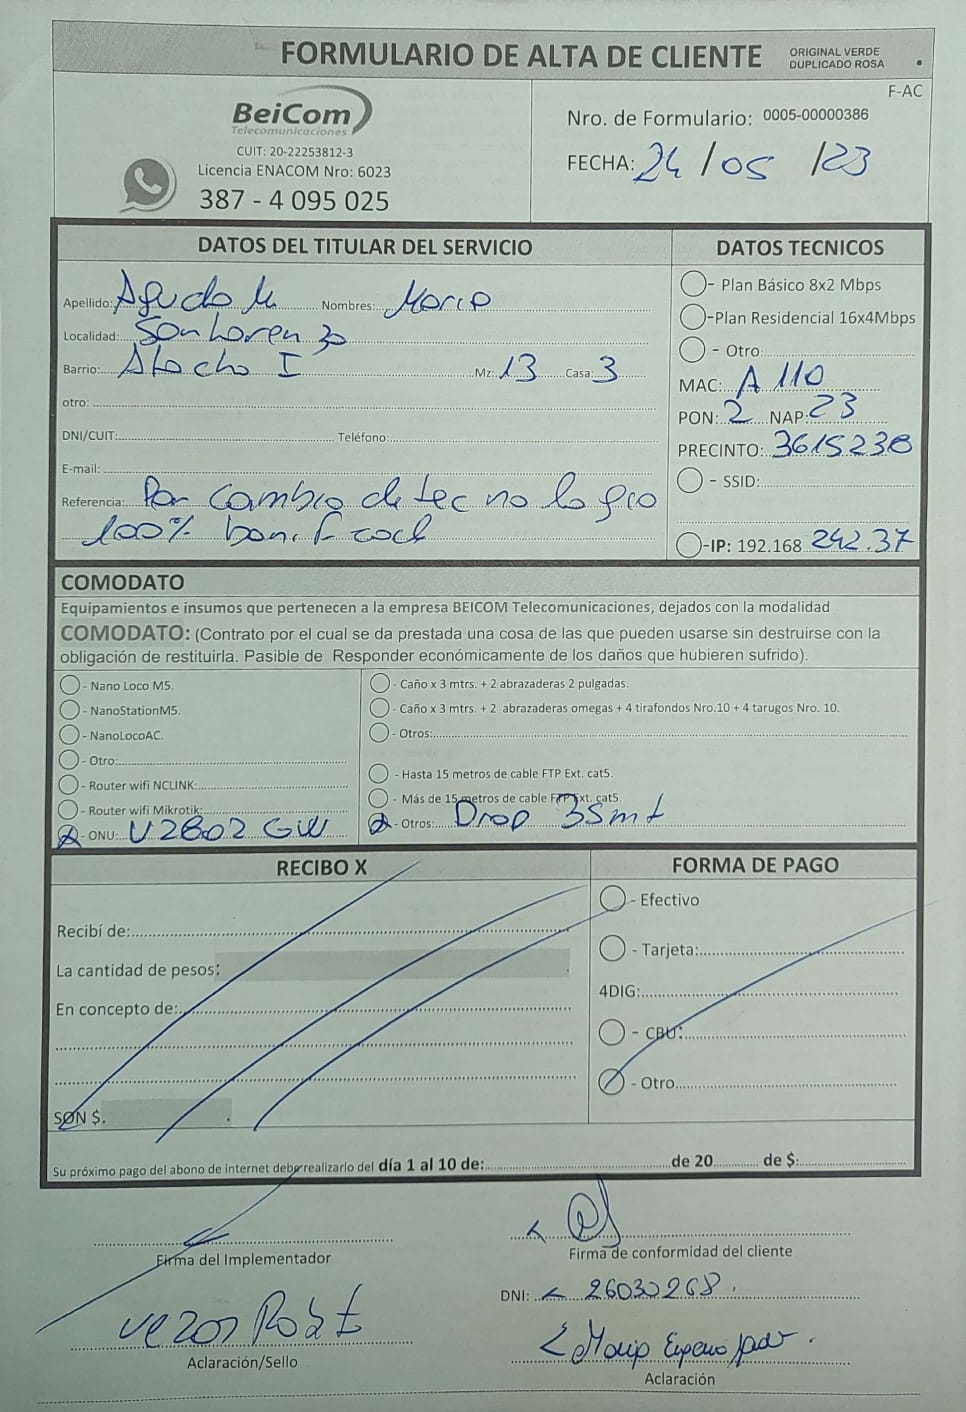 FORMULARIO DE ALTA DE CLIENTE
ORIGINAL VERDE
DUPLICADO ROSA
F-AC
BeiCom
Telecomunicaciones
CUIT: 20-22253812-3
Licencia ENACOM Nro: 6023
387 - 4 095 025
Nro. de Formulario: 0005-00000386
FECHA: 24 / 05 / 23
DATOS DEL TITULAR DEL SERVICIO
Apellido: Nombres:
Localidad: San Lorenzo
Barrio: Atocha I Mz: 13 Casa: 3
otro:
DNI/CUIT: Teléfono:
E-mail:
Referencia: Por cambio de tecnologia
100% bonificad
DATOS TECNICOS
- Plan Básico 8x2 Mbps
-Plan Residencial 16x4Mbps
- Otro:
MAC: A 110
PON: 2 NAP: 23
PRECINTO: 3615238
- SSID:
-IP: 192.168 242.37
COMODATO
Equipamientos e insumos que pertenecen a la empresa BEICOM Telecomunicaciones, dejados con la modalidad
COMODATO: (Contrato por el cual se da prestada una cosa de las que pueden usarse sin destruirse con la
obligación de restituirla. Pasible de Responder económicamente de los daños que hubieren sufrido).
- Nano Loco M5.
- NanoStationM5.
- NanoLocoAC.
- Otro:
- Router wifi NCLINK:
- Router wifi Mikrotik:
- ONU: V2802 GW
- Caño x 3 mtrs. + 2 abrazaderas 2 pulgadas.
- Caño x 3 mtrs. + 2 abrazaderas omegas + 4 tirafondos Nro.10 + 4 tarugos Nro. 10.
- Otros:
- Hasta 15 metros de cable FTP Ext. cat5.
- Más de 15 metros de cable FTP Ext. cat5.
- Otros: Drop 35mt
RECIBO X
Recibí de:
La cantidad de pesos:
En concepto de:
SON $.
FORMA DE PAGO
- Efectivo
- Tarjeta:
4DIG:
- CBU:
- Otro
Su próximo pago del abono de internet debe realizarlo del día 1 al 10 de: de 20 de $:
Firma del Implementador
Aclaración/Sello
Firma de conformidad del cliente
DNI: 26030268.
Aclaración